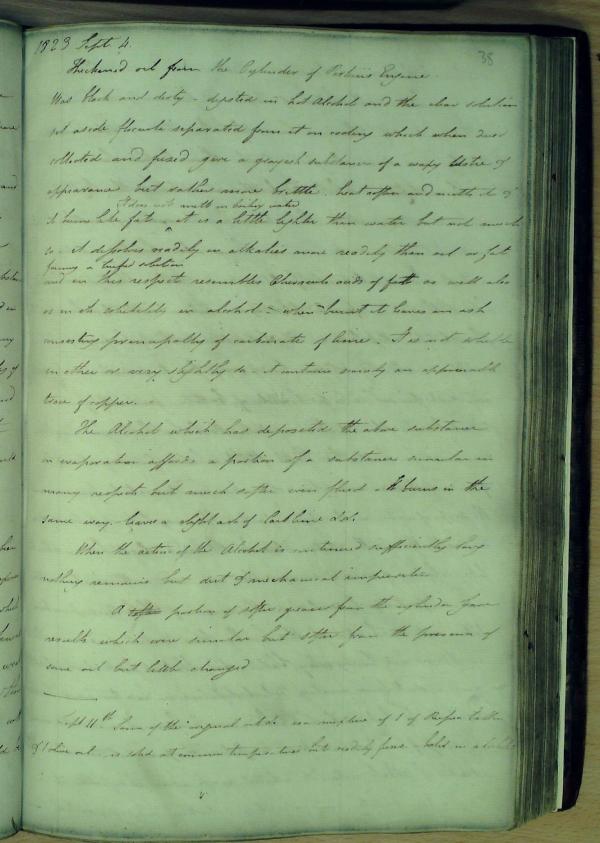 1823 Sept 4. 38
Thickened oil from the Cylinder of Perkins Engine.
Was black and dirty - digested in hot Alcohol and the clear solution
set aside flocculi separated from it on cooling which when
collected and fused gave a grayish substance of a waxy lustre &
appearance but rather more brittle. heat softens and melts it &
It does not melt in boiling water
it burns like fat. it is a little lighter than water but not much
so. it dissolves readily in alkalies more readily than oil or fat
forming a solution
and in this respect resembles Chevreuls acids of fatt as well also
as in its solubility in alcohol - when burnt it leaves an ash
consisting principally of carbonate of lime. It is not soluble
in ether or very slightly so. it contains merely an appreciable
trace of copper.
The Alcohol which has deposited the above substance
on evaporation affords a portion of a substance similar in
many respects but much softer even fluid. it burns in the
same way. leaves a slight ash of Carb lime &c.
When the action of the Alcohol is continued sufficiently long
nothing remains but dirt & mechanical impurities.
A portion of softer grease from the cylinder gave
results which were similar but softer from the presence of
some oil but little changed
Sept 11th Some of the original oil &c is a mixture of 1 of Russia tallow
& 1 olive oil. is solid at common temperatures but readily fuses.